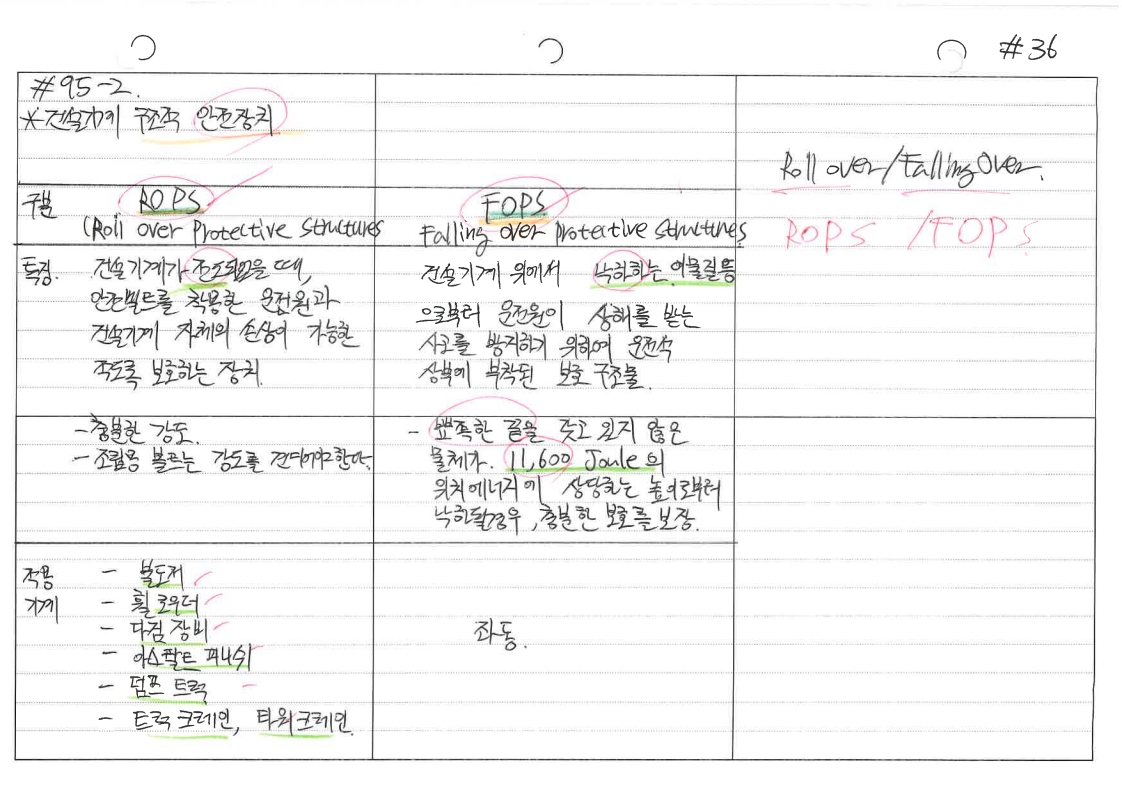 #36
#95-2.
*건설기계 구조적 안전장치
Roll over/Falling Over.
ROPS /FOPS
구분
ROPS
(Roll over Protective Structures
FOPS
Falling over Protective Structures
특징.
건설기계가 전도되었을 때,
안전벨트를 착용한 운전원과
건설기계 자체의 손상이 가능한
적도록 보호하는 장치.
건설기계 위에서 낙하하는 이물질등
으로부터 운전원이 상해를 받는
사고를 방지하기 위하여 운전석
상부에 부착된 보호 구조물.
-충분한 강도.
-조립용 볼트는 강도를 견뎌야한다.
- 뾰족한 끝을 갖고 있지 않은
물체가. 11,600 Joule의
위치에너지에 상당하는 높이로부터
낙하될경우, 충분한 보호를 보장.
적용
기계
- 불도저
- 휠 로우더
- 다짐 장비
- 아스팔트 피니쉬
- 덤프 트럭
- 트럭 크레인, 타워크레인.
좌동.